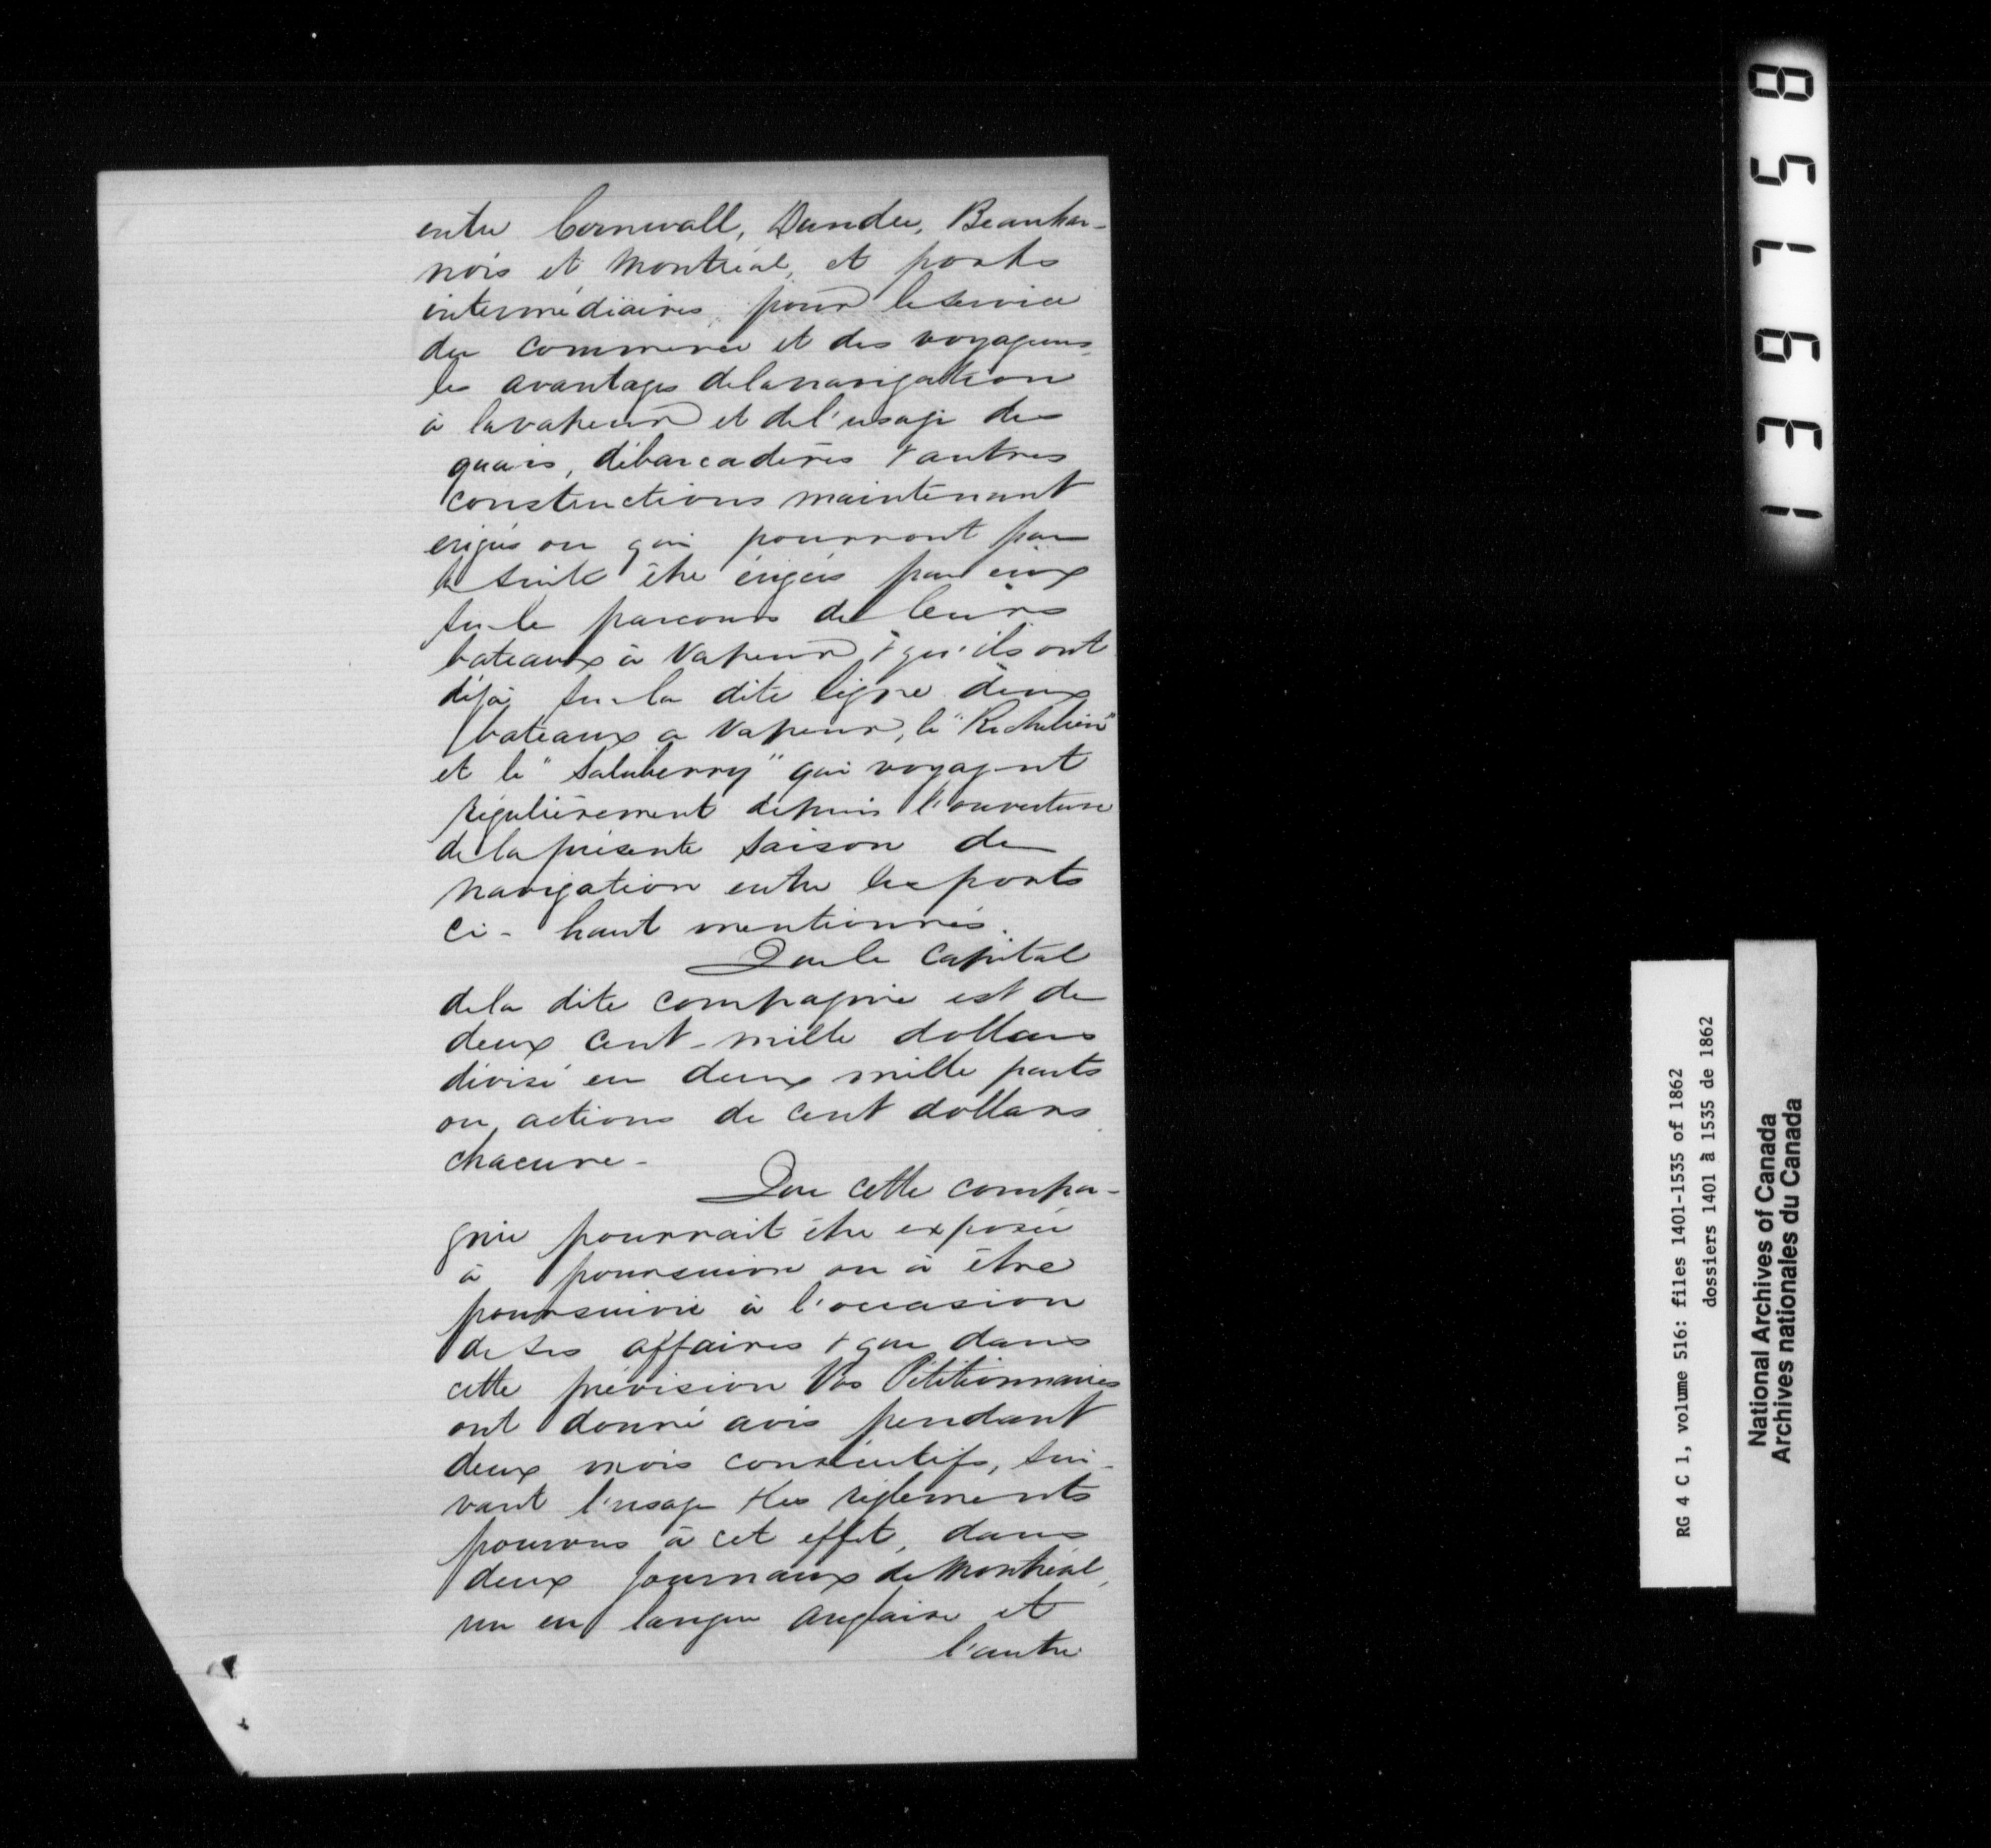 entre Cornwall, Dundee, Beauhar-
nois et Montréal, et ports
intermédiaires, pour le service
du commerce et des voyageurs,
les avantages de la navigation
à la vapeur et de l'usage des
quais, débarcadères & autres
constructions maintenant
érigés ou qui pourront par
la suite être érigés par eux
sur le parcours de leurs
bateaux à vapeur & qu'ils ont
déjà sur la dite ligne deux
bateaux a vapeur, le "Richelieu"
et le "Salaberry" qui voyagent
régulièrement depuis l'ouverture
de la présente saison de
navigation entre les ports
ci-haut mentionnés.
Que le capital
de la dite compagnie est de
deux cent-mille dollars
divisé en deux mille parts
ou actions de cent dollars
chacune-
Que cette compa-
gnie pourrait être exposée
à poursuivre ou à être
poursuivie à l'occasion
de ses affaires & que dans
cette prévision Vos Pétitionnaires
ont donné avis pendant
deux mois consécutifs, sui-
vant l'usage & les règlements
pourvus à cet effet, dans
deux journaux de Montréal,
un en langue anglaise et
l'autre
8 5 1 6 3 1
RG 4 C 1, volume 516: files 1401-1535 of 1862
dossiers 1401 à 1535 de 1862
National Archives of Canada
Archives nationales du Canada